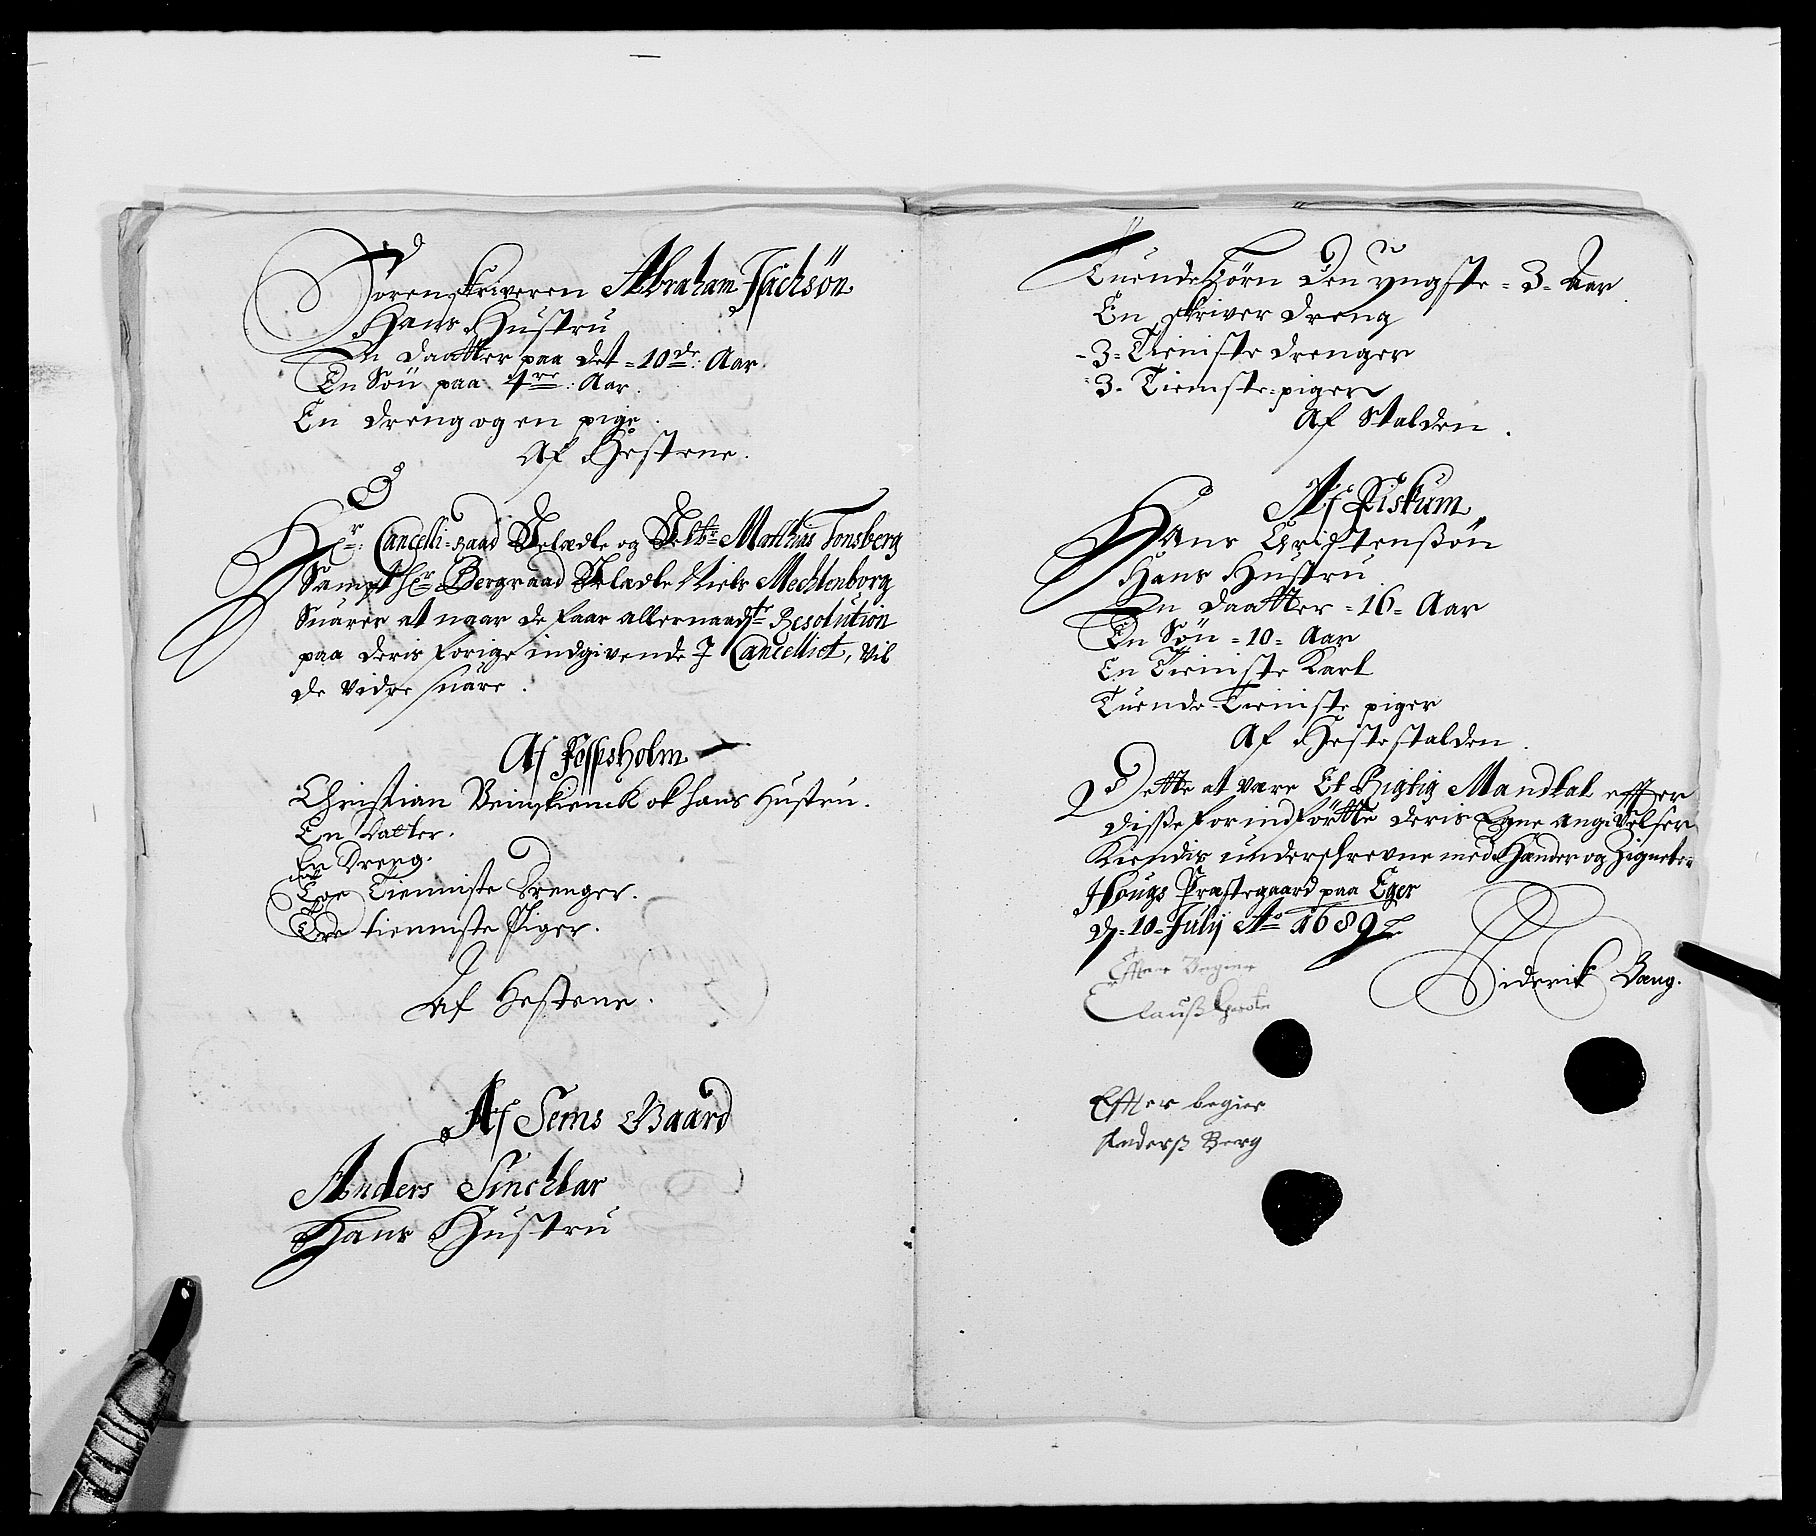 Sorenskriveren Abraham Jachsøn
Hans Hustru
En daatter paa det =10de: Aar.
En Søn paa 4re: Aar.
En dreng og en pige.
Af Hestene.
Hr: Cancelli=Raad Velædle og Velbr Matthias Tonsberg
Sampt Hr Bergraad Velædle Niels Mechlenborg
Suarer at naar de faar allernaadste Resolution
paa deris forige indgivende J Cancelliet, vil
de vidre suare.
Af Fossesholm
Christian Reinskienck ok hans Hustru.
En datter.
En Dreng.
Toe Tienniste Drenger.
Tre tienniste Piger.
Af Hestene.
Af Sems Gaard
Anders Sinchlar
Hans Hustru
Tuende Børn den yngste =3= Aar
En skriver dreng
=3= Tieniste drenger
=3= Tieniste=piger
Af Stalden.
Af Fiskum
Hans Christensøn
Hans Hustru
En daatter =16= Aar
En Søn =10= Aar
En Tieniste Karl
Tuende Tieniste piger
Af Hestestalden.
Dette at vare Et Rigtig Mandtal effter
disse forindførtte deris Egne angivelser
Kiendis underskrevne med Hænder og Zigneter
Hougs Præstegaard paa Eger
d. 10 Julij Ao 1689
Diderik Bang.
Effter Begier
Clauss
Effter begier
Anderss Berg